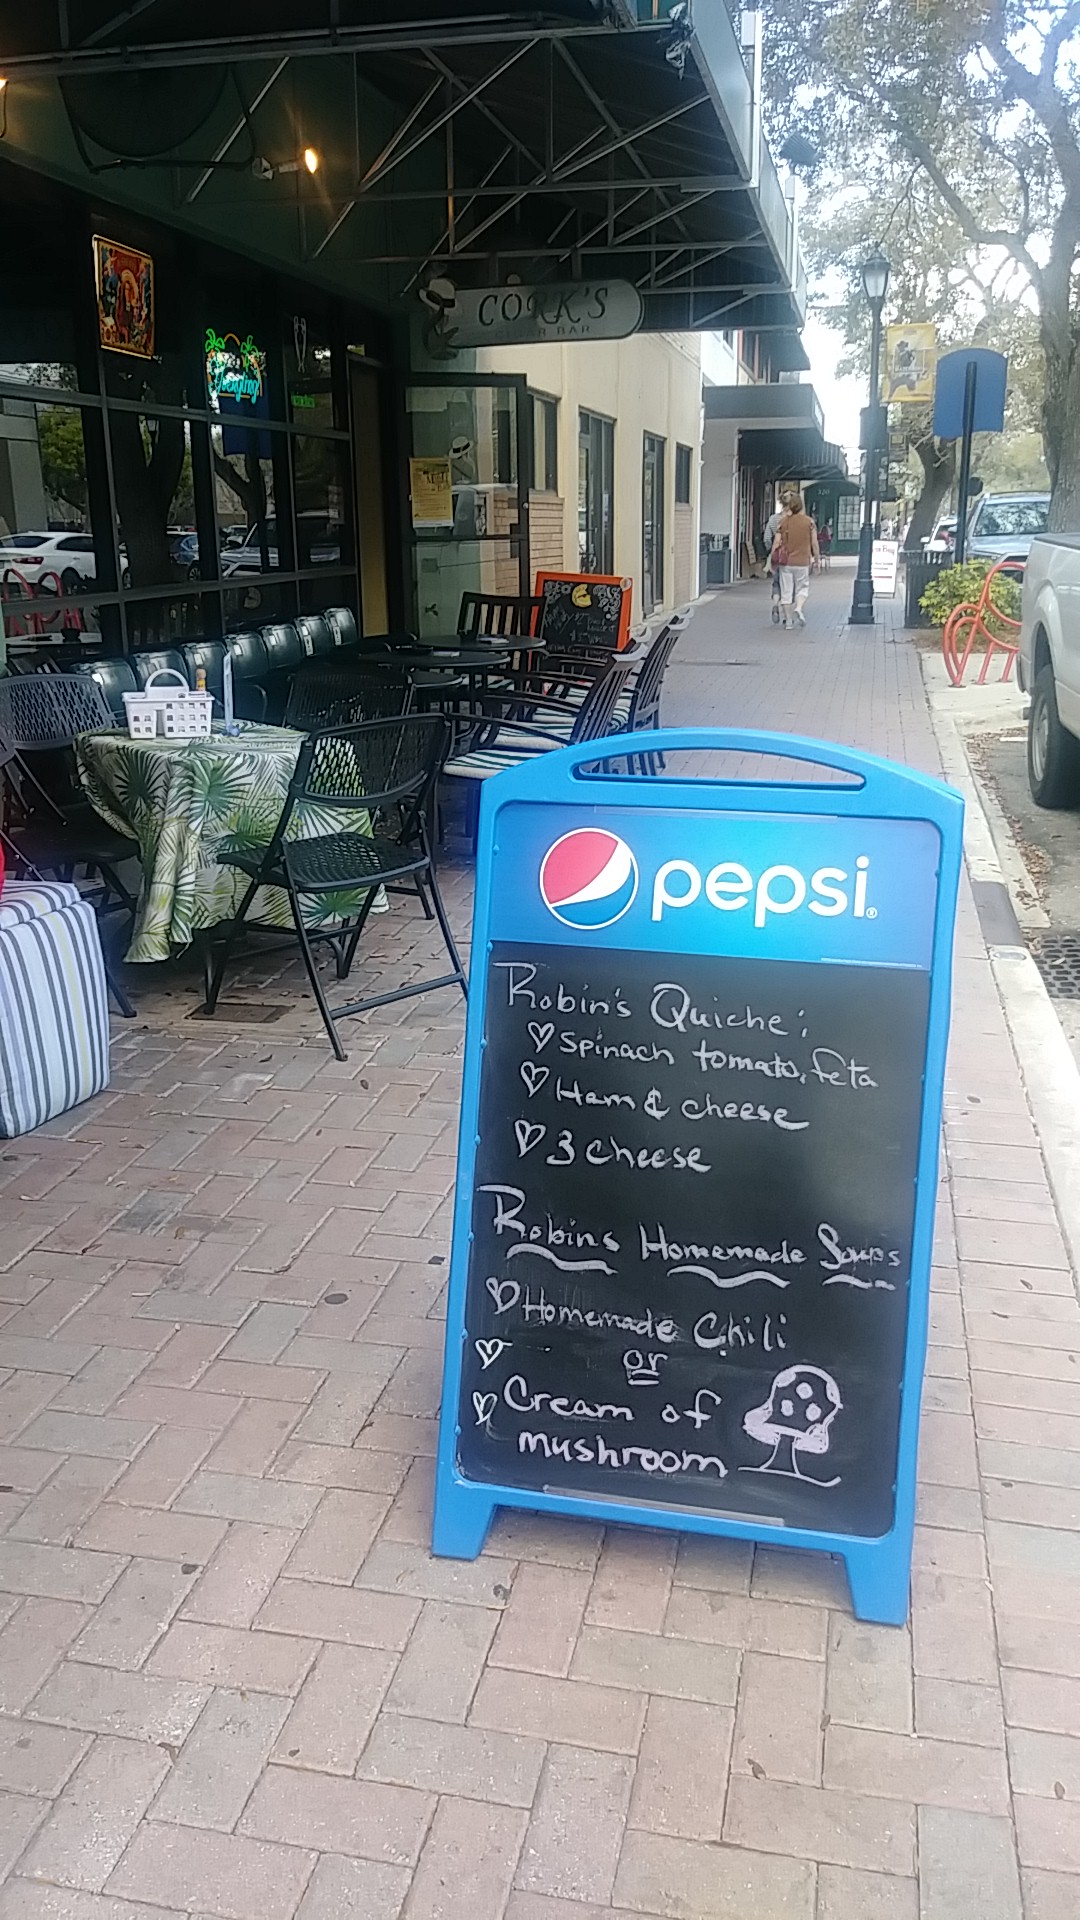 CORK'S
CIGAR BAR
Yuengling
320
pepsi
Robin's Quiche:
Spinach tomato, feta
Ham & cheese
3 cheese
Robins Homemade Soups
Homemade Chili
or
Cream of
mushroom